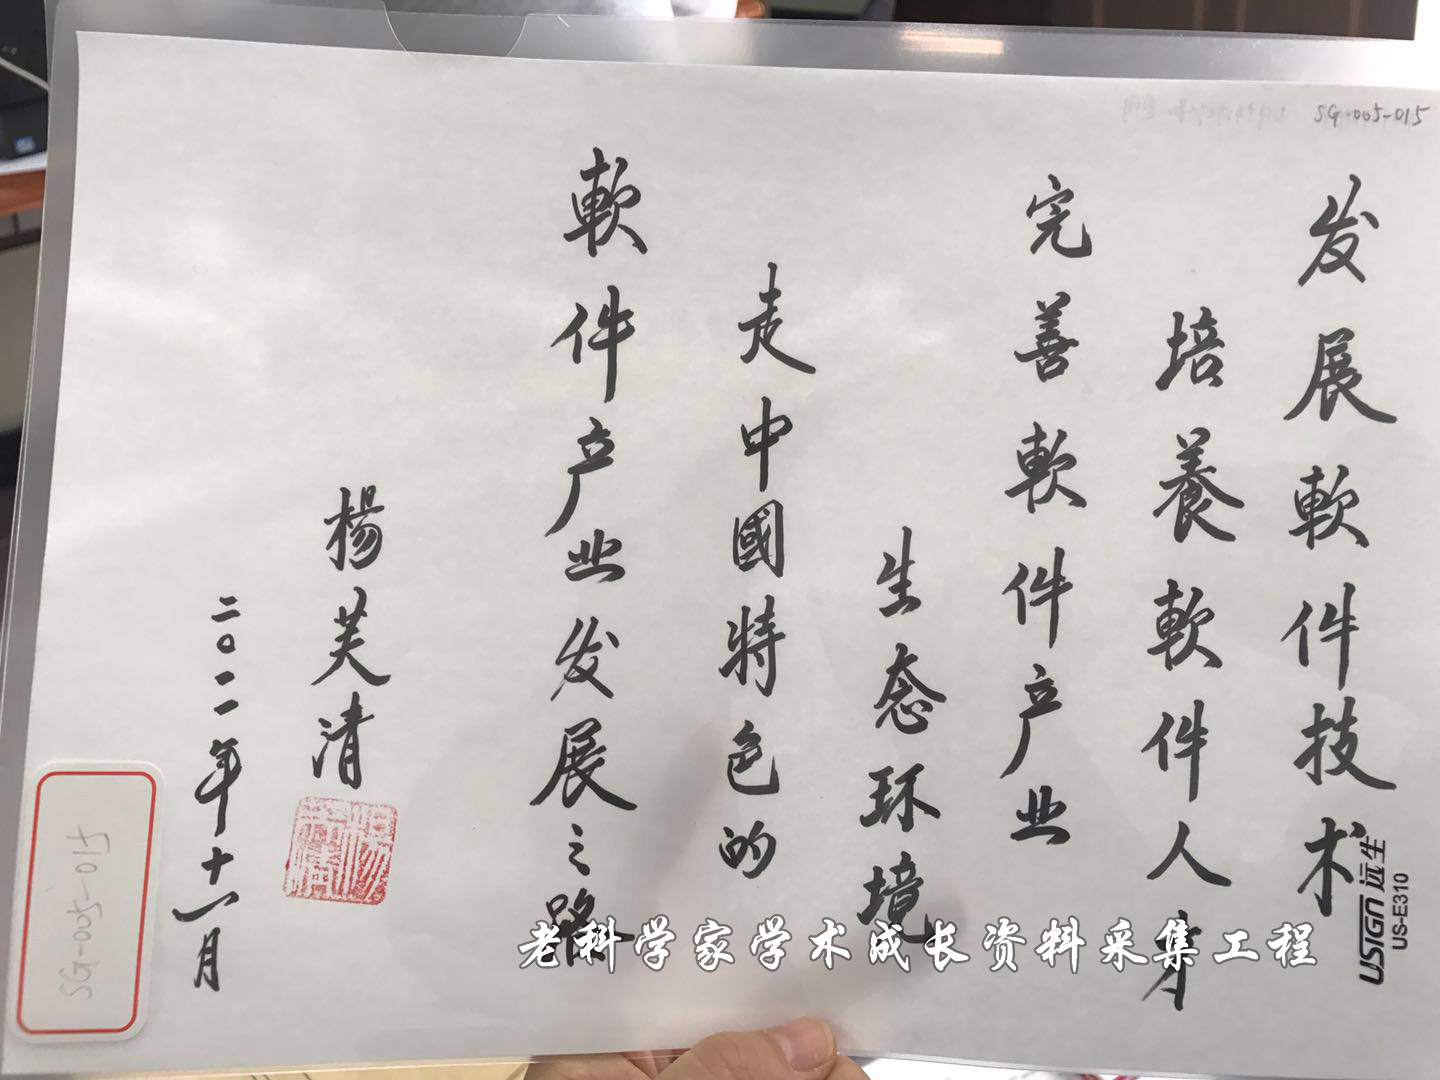 SG-005-015
发展軟件技术
培養軟件人才
完善軟件产业
生态环境
走中國特色的
軟件产业发展之路
楊芙清
二〇一一年十一月
SG-005-015
老科学家学术成长资料采集工程
USIGN 远生
US-E310